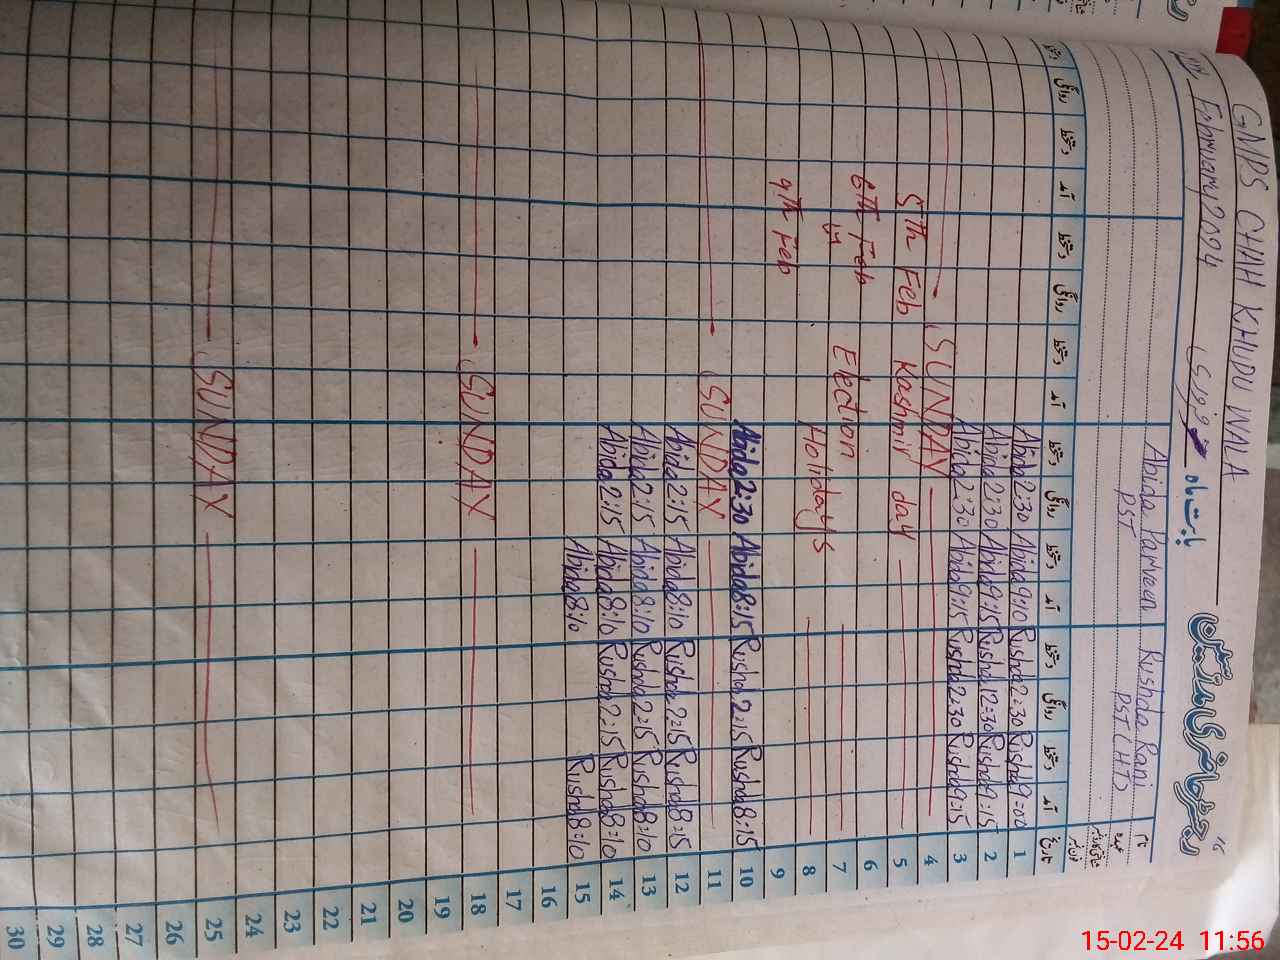 16
GNPS CHAH KHUDU WALA
رجسٹر حاضری مدرسین
بابت ماہ
February 2024
نام
Rushda Rani
Abida Parveen
عہدہ
PST (HT)
PST
تاریخ آمد دستخط روانگی دستخط آمد دستخط روانگی دستخط آمد دستخط روانگی دستخط آمد دستخط روانگی دستخط
1 9:00 Rushda 2:30 Rushda 9:10 Abida 2:30 Abida
2 9:15 Rushda 12:30 Rushda 9:15 Abida 2:30 Abida
3 9:15 Rushda 2:30 Rushda 9:15 Abida 2:30 Abida
4 (SUNDAY
5 5Th Feb Kashmir day
6 6Th Feb
7 Election
8 Holidays
9 9Th Feb
10 8:15 Rushda 2:15 Rushda 8:15 Abida 2:30 Abida
11 (SUNDAY
12 8:15 Rushda 2:15 Rushda 8:10 Abida 2:15 Abida
13 8:10 Rushda 2:15 Rushda 8:10 Abida 2:15 Abida
14 8:10 Rushda 2:15 Rushda 8:10 Abida 2:15 Abida
15 8:10 Rushda 8:10 Abida
16
17
18 (SUNDAY
19
20
21
22
23
24
25 (SUNDAY
26
27
28
29
30
15-02-24 11:56